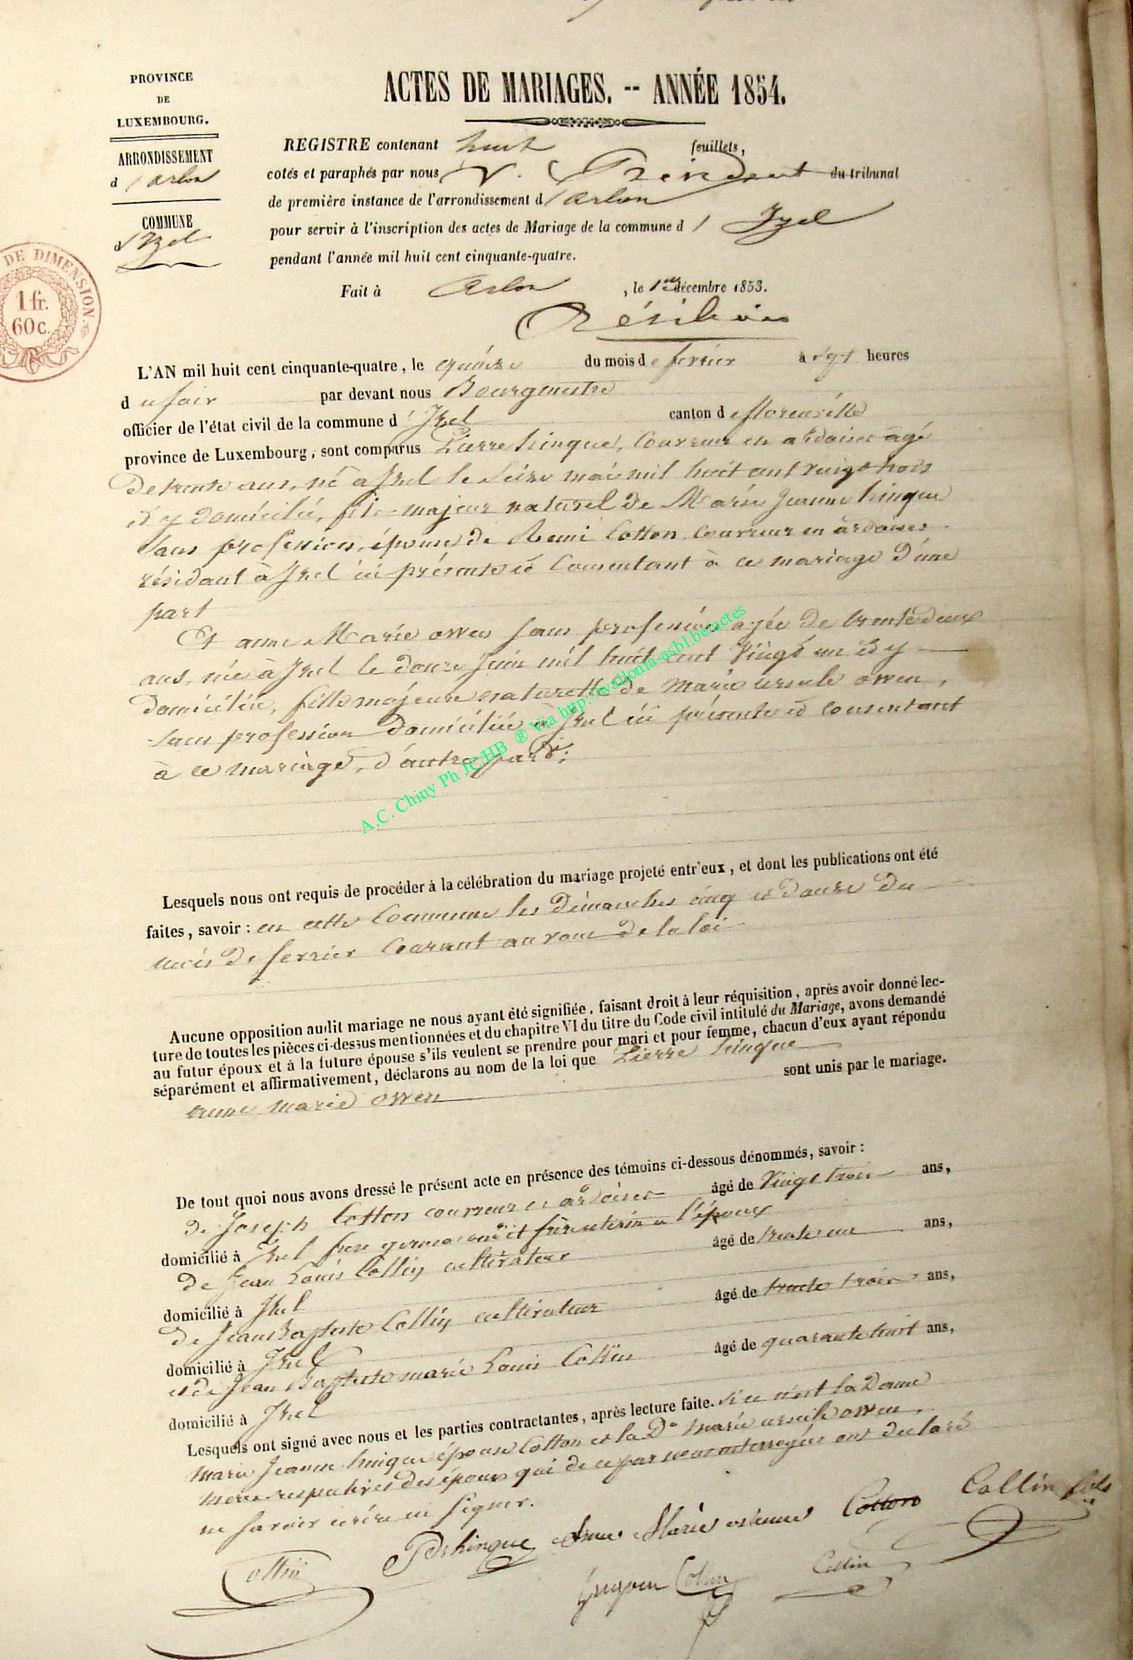 PROVINCE
DE
LUXEMBOURG.
ARRONDISSEMENT
d'Arlon
COMMUNE
d'Izel
DE DIMENSION
1 fr.
60 c.
ACTES DE MARIAGES. -- ANNÉE 1854.
REGISTRE contenant huit feuillets,
cotés et paraphés par nous V. Président du tribunal
de première instance de l'arrondissement d'Arlon
pour servir à l'inscription des actes de Mariage de la commune d'Izel
pendant l'année mil huit cent cinquante-quatre.
Fait à Arlon, le 1er décembre 1853.
L'AN mil huit cent cinquante-quatre, le quinze du mois de fevrier à sept heures
du soir par devant nous Bourgmestre
officier de l'état civil de la commune d'Izel canton de florenville
province de Luxembourg, sont comparus Pierre hinque, couvreur en ardoises agé
de trente ans, né à Izel le seize mai mil huit cent vingt trois
et y domicilié, fils majeur naturel de Marie Jeanne hinque
sans profession, épouse de Remi Cotton couvreur en ardoises
résidant à Izel ici présente et consentant à ce mariage d'une
part
Et anne Marie owen sans profession agée de trente deux
ans, née à Izel le douze juin mil huit cent vingt un et y
domiciliée, fille majeure naturelle de marie ursule owen,
sans profession domiciliée à Izel ici présente et consentant
à ce mariage, d'autre part;
A.C. Chiny Ph JC/HB ® Via http://wallonia-asbl.be/actes
Lesquels nous ont requis de procéder à la célébration du mariage projeté entr'eux, et dont les publications ont été
faites, savoir : en cette Commune les dimanches cinq et douze du
mois de fevrier courant au vœu de la loi
Aucune opposition audit mariage ne nous ayant été signifiée, faisant droit à leur réquisition, après avoir donné lec-
ture de toutes les pièces ci-dessus mentionnées et du chapitre VI du titre du Code civil intitulé du Mariage, avons demandé
au futur époux et à la future épouse s'ils veulent se prendre pour mari et pour femme, chacun d'eux ayant répondu
séparément et affirmativement, déclarons au nom de la loi que Pierre hinque
anne marie owen sont unis par le mariage.
De tout quoi nous avons dressé le présent acte en présence des témoins ci-dessous dénommés, savoir :
de Joseph Cotton couvreur en ardoises âgé de vingt trois ans,
domicilié à Izel frère utérin à l'époux
de Jean Louis Collin cultivateur âgé de trente un ans,
domicilié à Izel
de Jean Baptiste Collin cultivateur âgé de trente trois ans,
domicilié à Izel
et de Jean Baptiste marie Louis Collin âgé de quarante huit ans,
domicilié à Izel
Lesquels ont signé avec nous et les parties contractantes, après lecture faite. si ce n'est la Dame
marie Jeanne hinque épouse Cotton et la De marie ursule owen,
meres respectives des époux qui de ce par nous interrogées ont declaré
ne savoir écrire ni signer.
Collin P hinque Anne Marie Cotton Collin fils
Collin